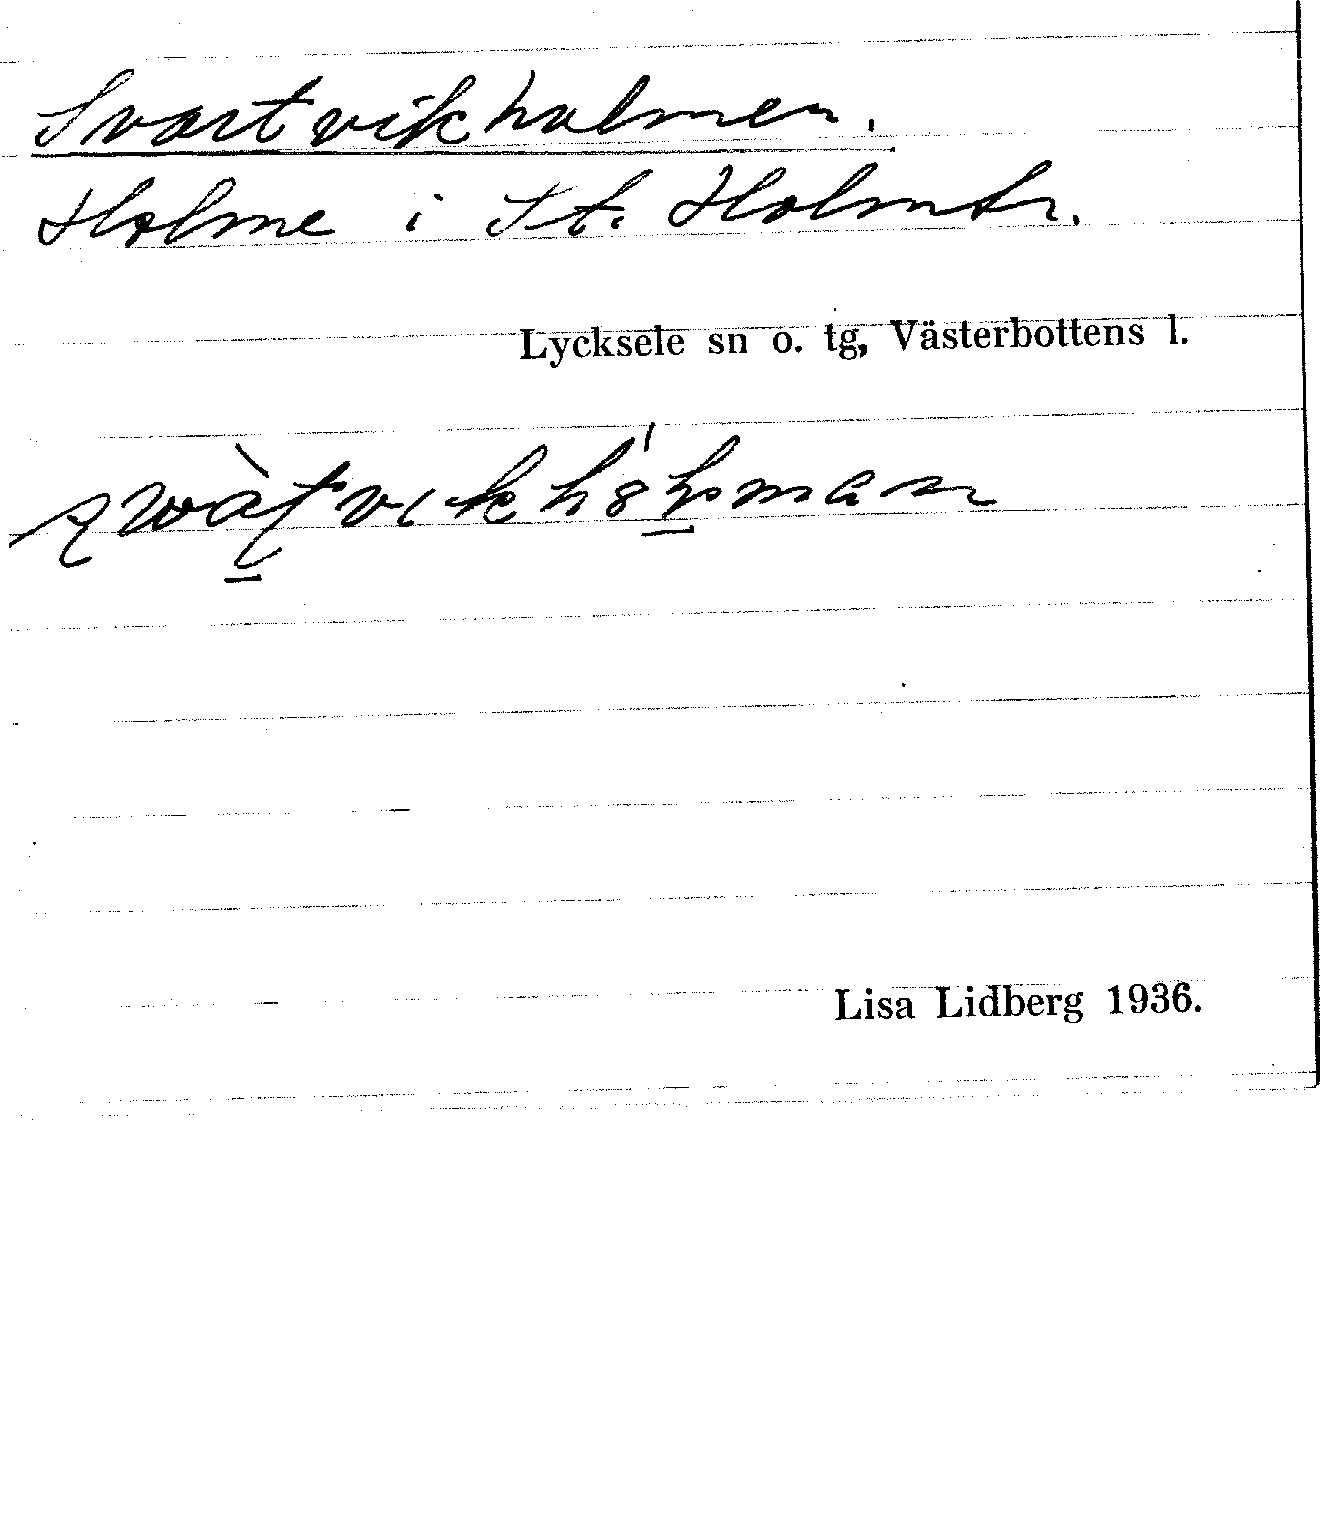 Svartvikholmen.
Holme i St. Holmtr.
Lycksele sn o. tg, Västerbottens l.
Lisa Lidberg 1936.